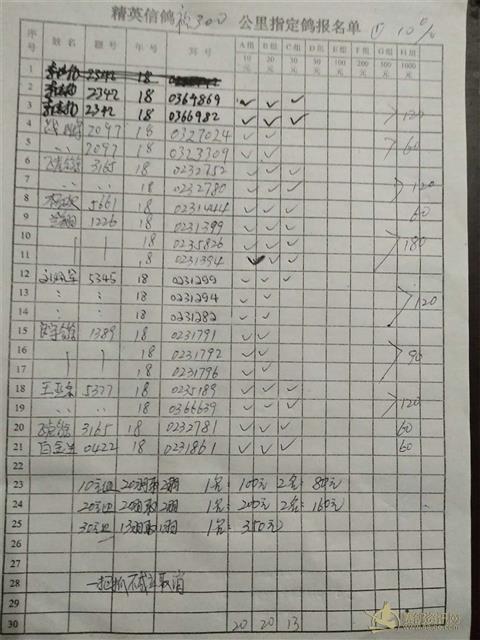 精英信鸽 秋300 公里指定鸽报名单 ① 10%
序号 姓名 棚号 年号 环号 A组 10元 B组 20元 C组 30元 D组 50元 E组 100元 F组 200元 G组 500元 H组 1000元
1 2342 18
2 2342 18 0369869 ✓ ✓ ✓
3 2342 18 0366982 ✓ ✓ ✓ 120
4 2097 18 0327024 ✓ ✓
5 〃 2097 18 0323709 ✓ ✓ 60
6 3165 18 0232752 ✓ ✓ ✓
7 〃 〃 18 0232780 ✓ ✓ ✓ 120
8 5661 18 0231444 ✓ ✓ ✓ 60
9 1226 18 0231399 ✓ ✓ ✓
10 18 0235826 ✓ ✓ ✓ 180
11 18 0231394 ✓ ✓ ✓
12 5345 18 0231299 ✓ ✓
13 18 0231294 ✓ ✓ 120
14 18 0231282 ✓ ✓
15 1389 18 0231791 ✓ ✓
16 18 0231792 ✓ ✓ 90
17 18 0231796 ✓ ✓
18 5377 18 0235189 ✓ ✓ ✓
19 〃 〃 18 0366639 ✓ ✓ ✓ 120
20 3165 18 0232781 ✓ ✓ ✓ 60
21 0422 18 0231861 ✓ ✓ ✓ 60
22
23 10元组 20羽取2羽 1名: 100元 2名: 80元
24 20元组 20羽取2羽 1名: 200元 2名: 160元
25 30元组 13羽取1羽 1名: 350元
26
27
28 一把抓不成立取消
29
30 20 20 13